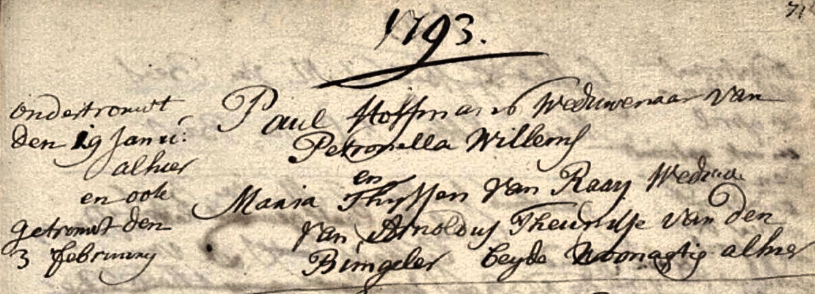 71
1793.
ondertrouwt
den 19 Janri:
alhier
en ook
getrouwt den
3 february
Paul Hoffmans Weduwenaar van
Petronella Willems
en
Maria Thyssen van Raay Weduwe
van Arnoldus Theunisse van den
Bingeler beyde Woonagtig alhier